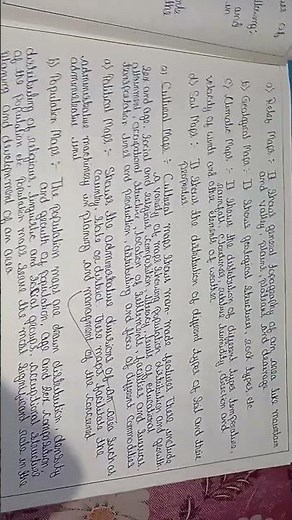 a) Relief Map :- It Shows general topography of an area like mountain
and valley, plains, plateau and drainage.
b) Geological Map :- It Shows geological Structure, rock types etc
c) Climatic Map :- It Shows the distribution of different types temperature,
rainfall, cloudiness, relative humidity, direction and
velocity of wind and other elements of weather.
d) Soil Map :- It Shows the distribution of different types of Soil and their
properties
Cultural Map :- Cultural maps Show man made features. These include
a variety of maps Showing population distribution and growth
Sex and age, Social and religious composition, literacy, level of educational
attainment, occupational Structure, location of Settlements, facilities and Services
transportation lines and production, distribution and flow of different commodities
a) Political Maps :- Shows the administrative divisions of an area Such as
Country, State or district. These maps facilitate the
administrative machinery in planning and management of the concerned
administrative unit
b) Population Maps :- The population maps are drawn distribution density
and growth of population, age and Sex composition
distribution of religious, linguistic and Social groups, occupational Structure
of the population etc. Population maps Serve the most Significant role in the
planning and development of an area